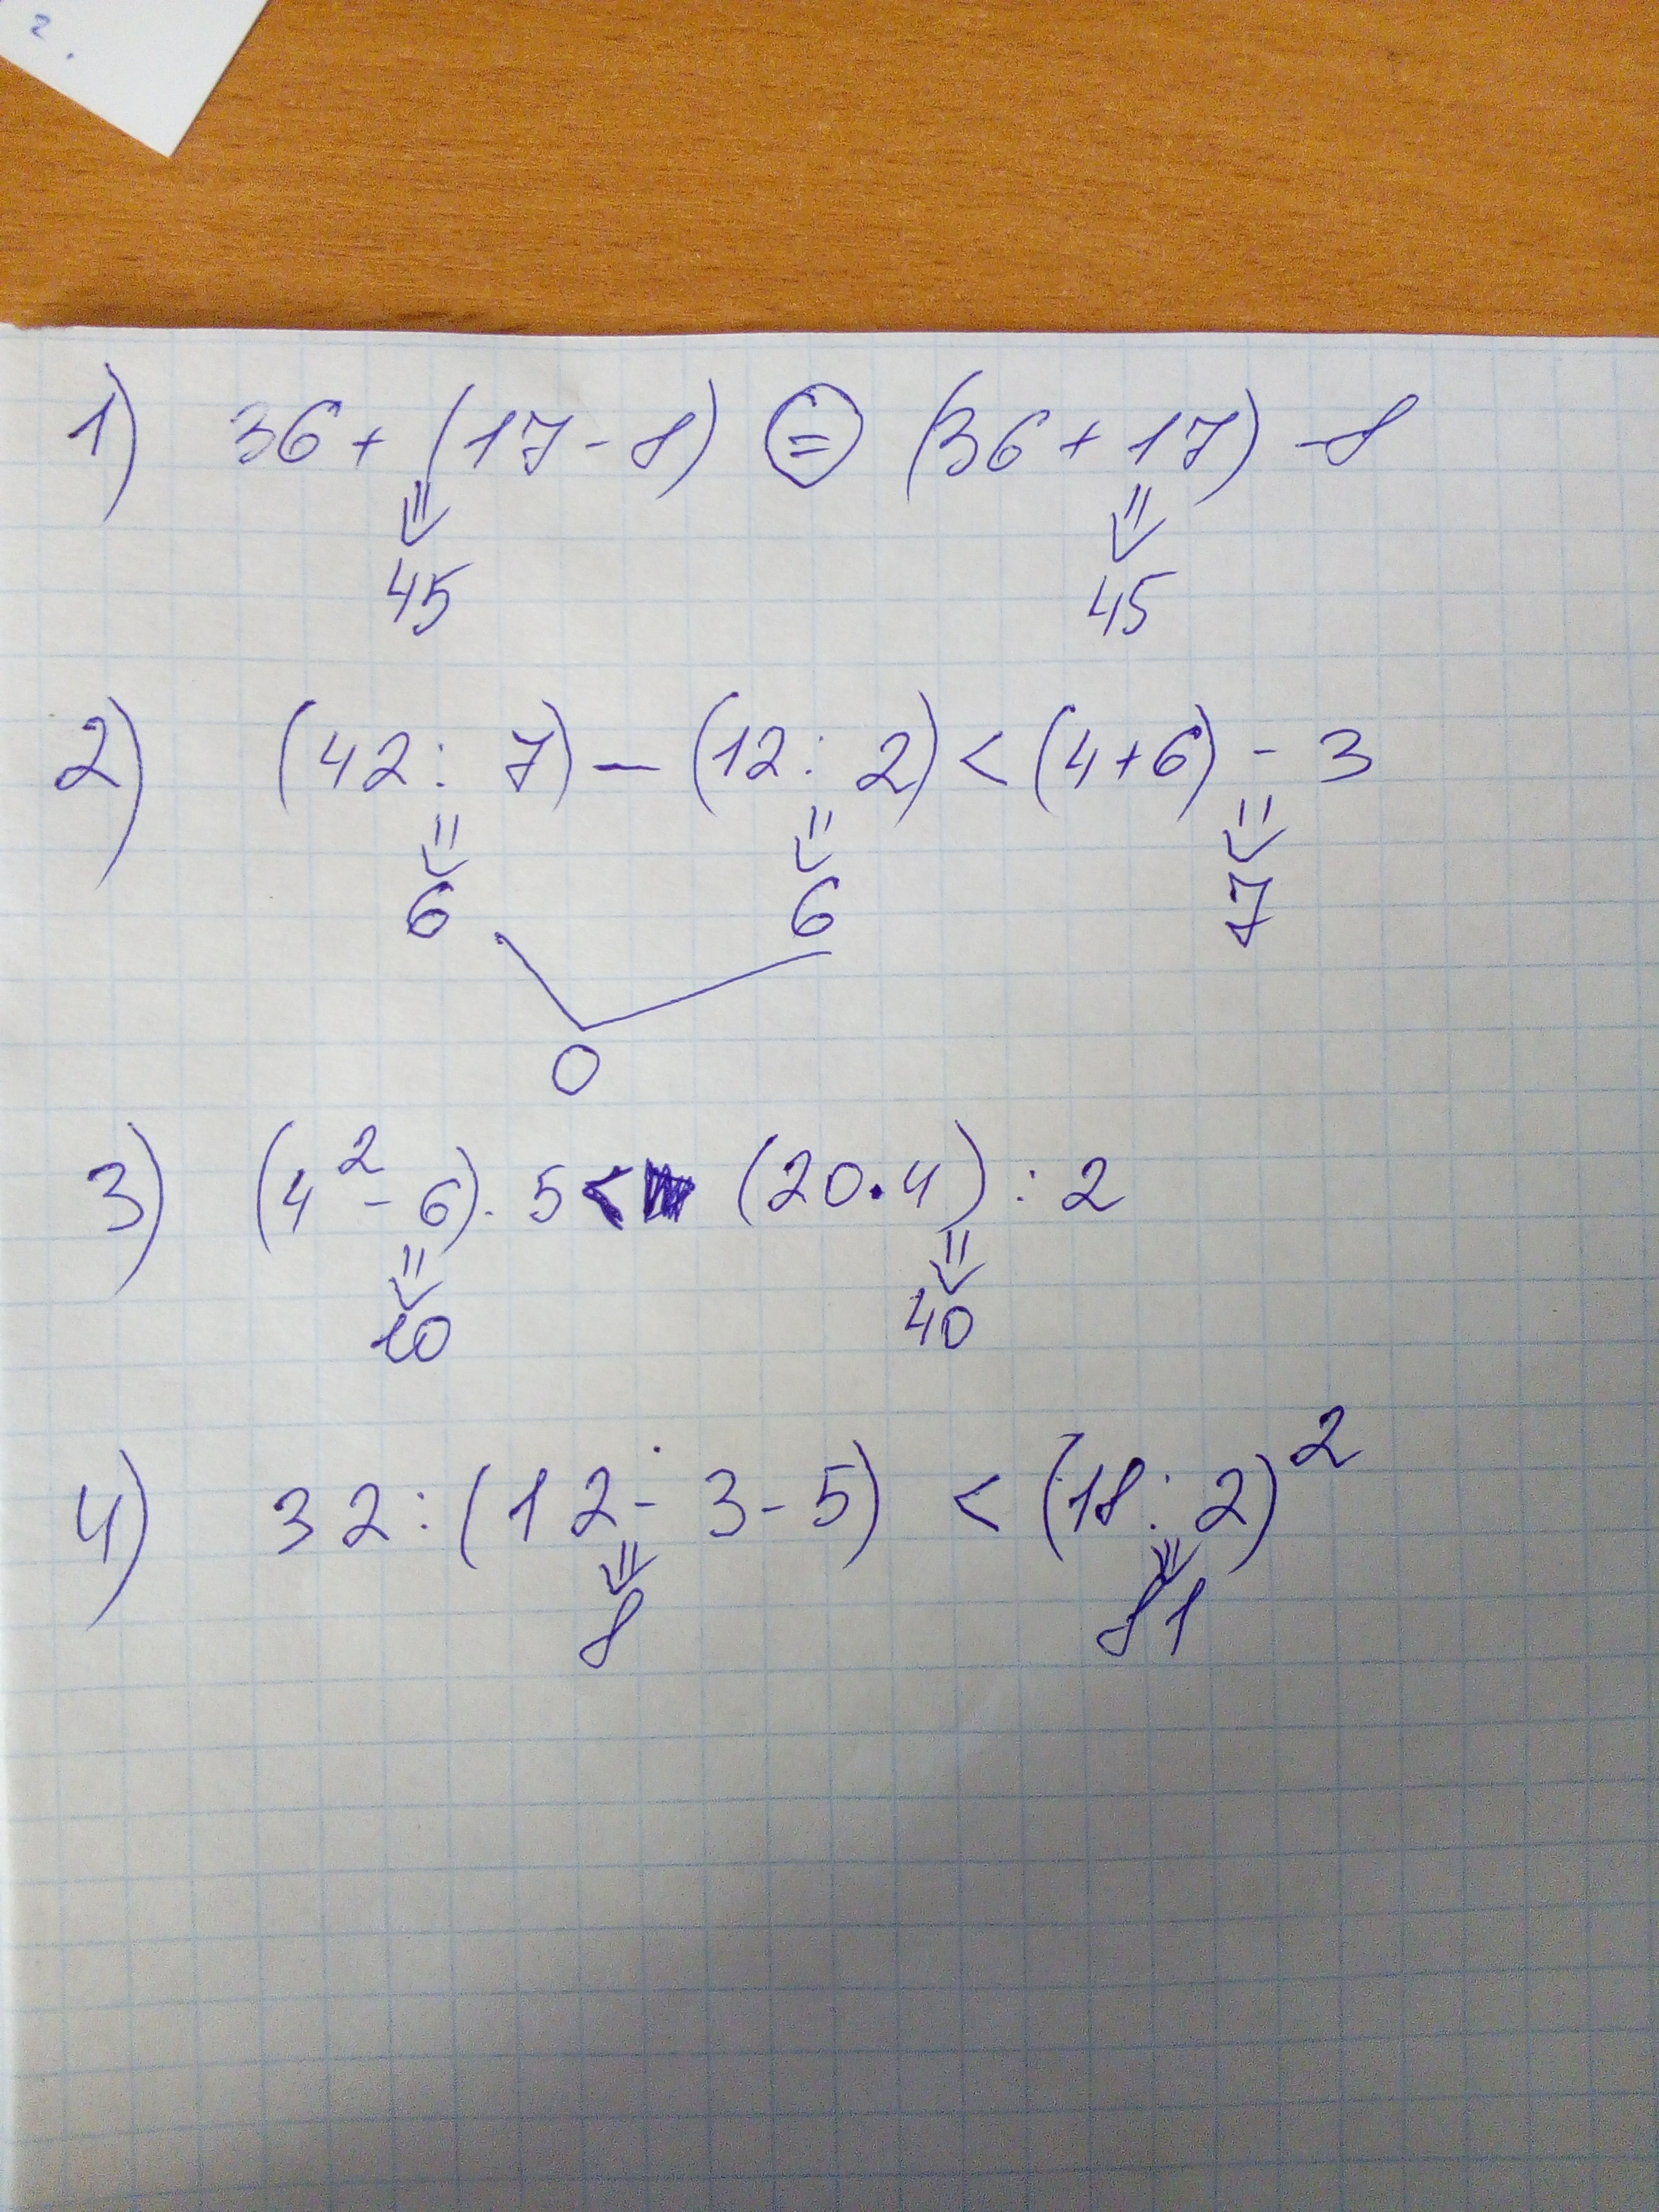 2.
1) 36 + (17 - 8) = (36 + 17) - 8
⇓ ⇓
45 45
2) (42 : 7) - (12 : 2) < (4+6) - 3
⇓ ⇓ ⇓
6 6 7
0
3) (4² - 6) · 5 < (20 · 4) : 2
⇓ ⇓
10 40
4) 32 : (12 - 3 - 5) < (18 : 2)²
⇓ ⇓
8 81